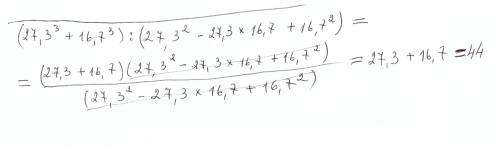 (27,3³ + 16,7³) : (27,3² - 27,3 × 16,7 + 16,7²) =
= (27,3 + 16,7)(27,3² - 27,3 × 16,7 + 16,7²) / (27,3² - 27,3 × 16,7 + 16,7²) = 27,3 + 16,7 = 44